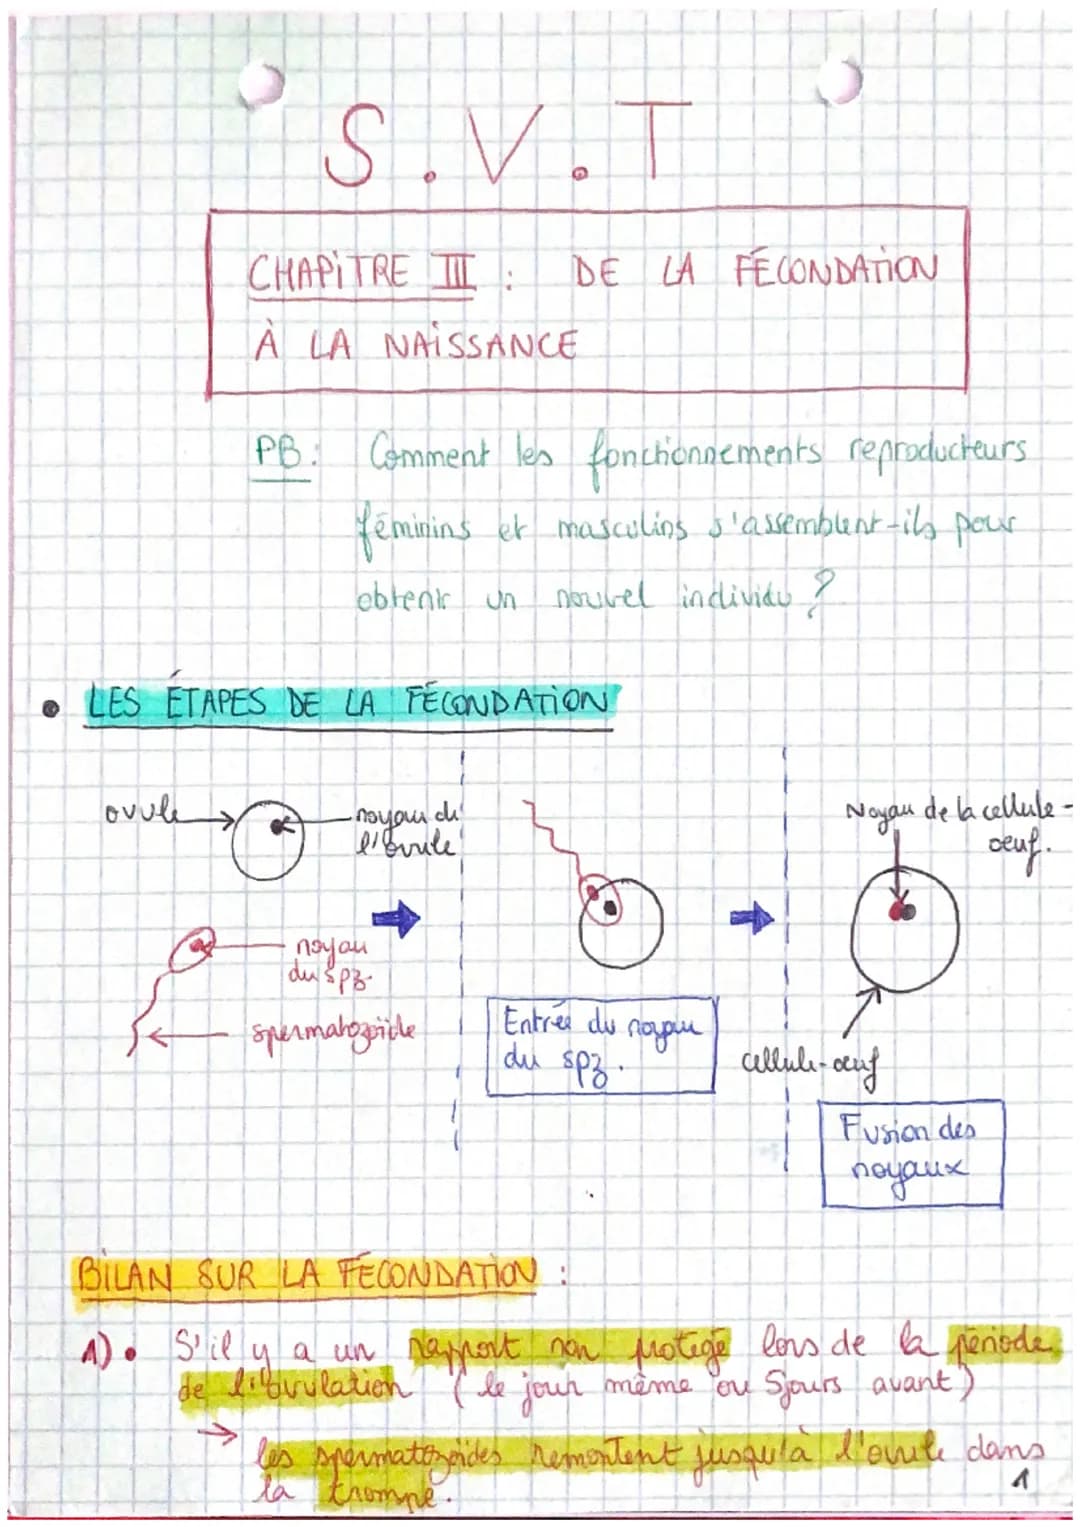 S.V.T
CHAPITRE III : DE LA FÉCONDATION
À LA NAISSANCE
PB : Comment les fonctionnements reproducteurs
féminins et masculins s'assemblent-ils pour
obtenir un nouvel individu ?
• LES ÉTAPES DE LA FÉCONDATION
ovule
noyau du
l'ovule
noyau
du spz.
spermatozoïde
Entrée du noyau
du spz.
Noyau de la cellule-
oeuf.
cellule-oeuf
Fusion des
noyaux
BILAN SUR LA FÉCONDATION :
1) • S'il y a un rapport non protegé lors de la période
de l'ovulation (le jour même ou 5jours avant)
→ les spermatozoïdes remontent jusqu'à l'ovule dans
la trompe.
1